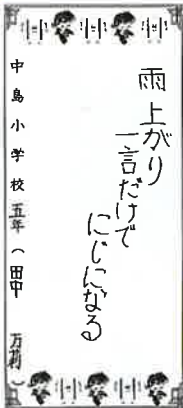 雨上がり
一言だけで
にじになる
中島小学校五年（田中 万莉）